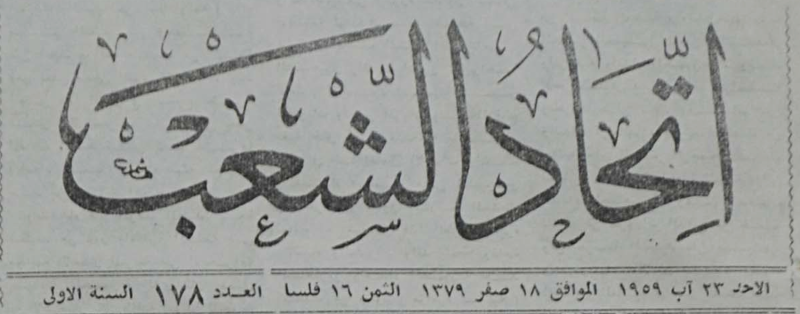 اتِّحَادُ الشَّعب
الاحد ٢٣ آب ١٩٥٩ الموافق ١٨ صفر ١٣٧٩ الثمن ١٦ فلسا العدد ١٧٨ السنة الاولى